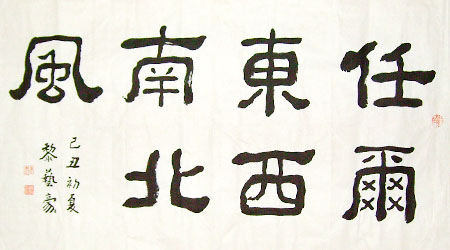 任爾
東西
南北
風
己丑初夏
黎藝豪